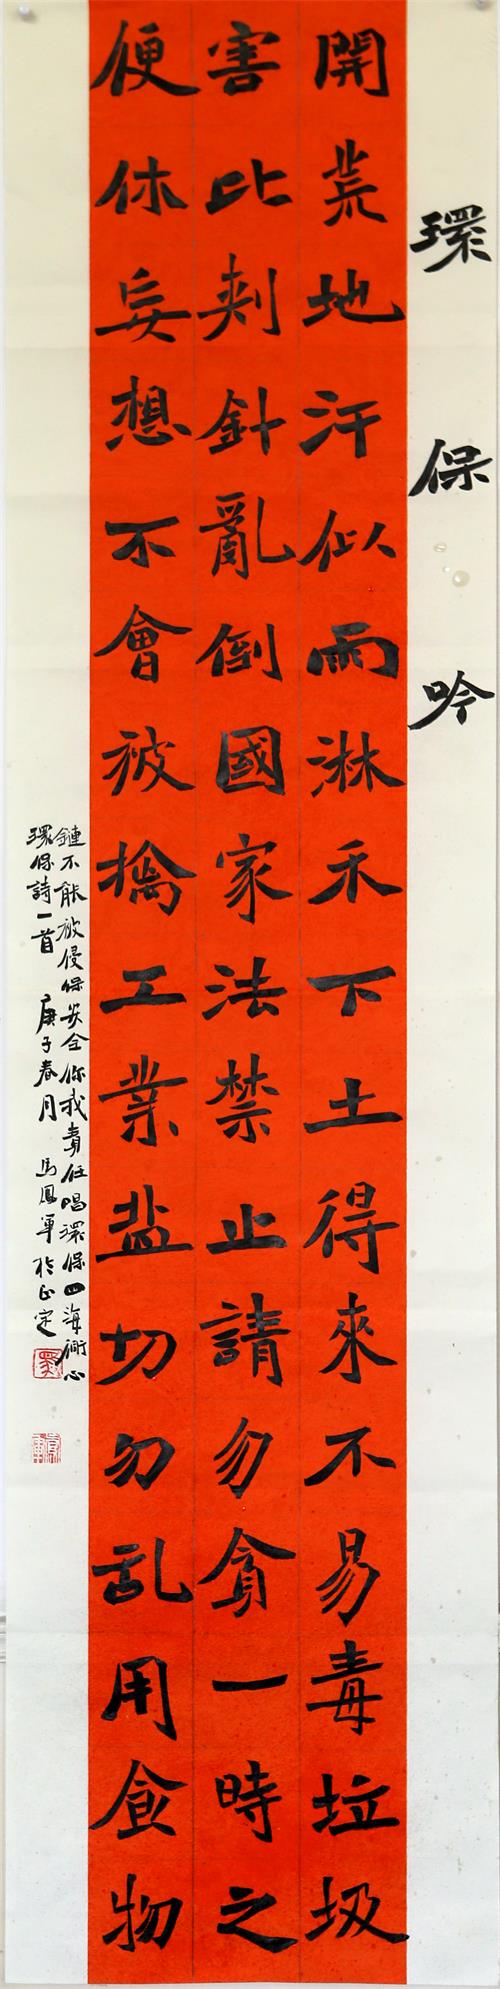 環保吟
開荒地汗似雨淋禾下土得來不易毒垃圾
害比刺針亂倒國家法禁止請勿貪一時之
便休妄想不會被擒工業盐切勿乱用食物
鏈不能被侵保安全你我責任唱環保四海衕心
環保詩一首 庚子春月 馬鳳軍於正定